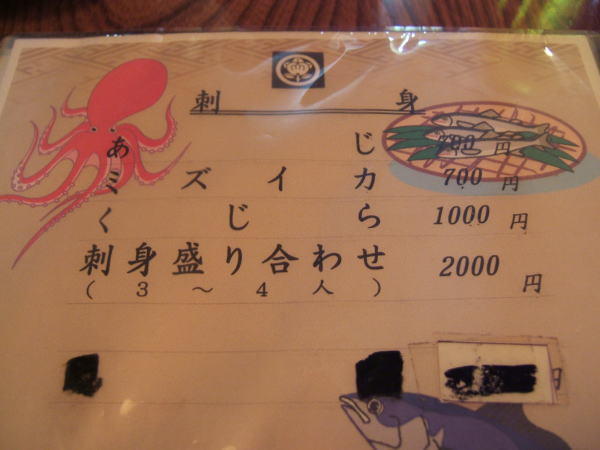 刺身
あじ 円
ミズイカ 700円
くじら 1000円
刺身盛り合わせ 2000円
(3～4人)
円